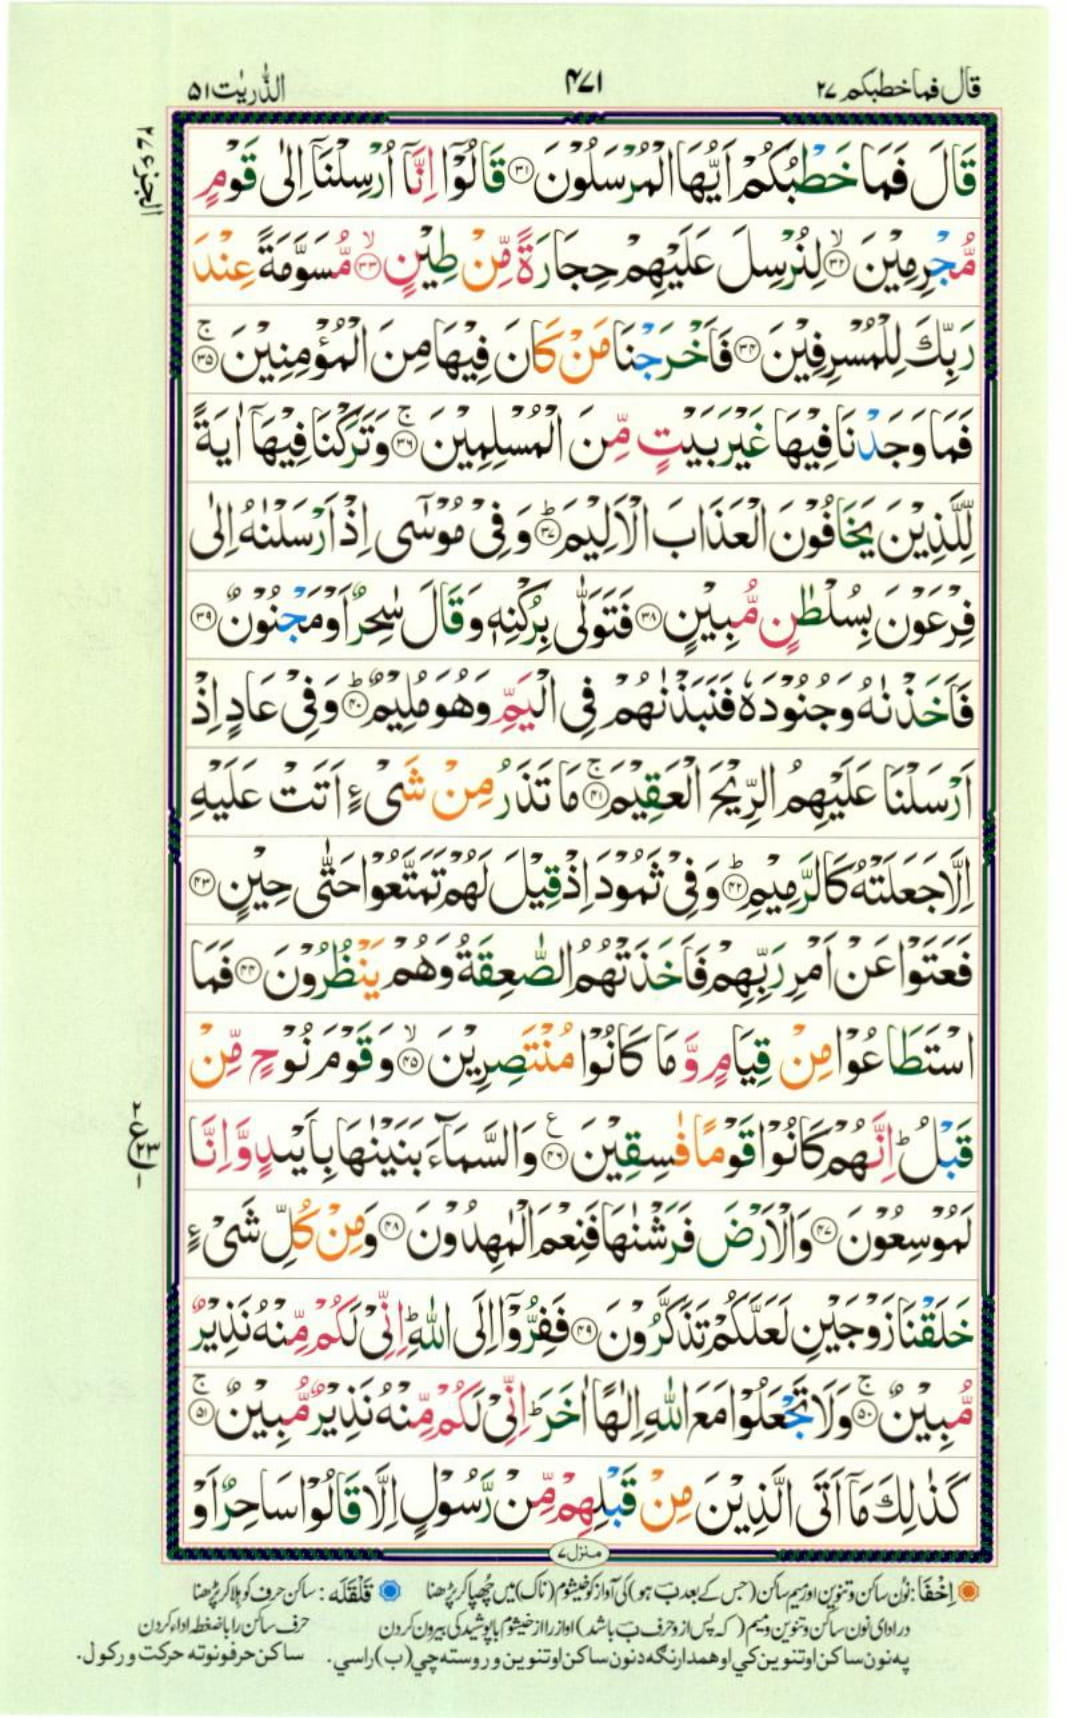 قال فما خطبكم ٢٧
۴۷۱
الذّٰریٰت ۵۱
الجزء ۲۷
قَالَ فَمَا خَطْبُكُمْ اَيُّهَا الْمُرْسَلُوْنَ ۝۳۱ قَالُوْۤا اِنَّاۤ اُرْسِلْنَاۤ اِلٰى قَوْمٍ
مُّجْرِمِيْنَ ۝۳۲ۙ لِنُرْسِلَ عَلَيْهِمْ حِجَارَةً مِّنْ طِيْنٍ ۝۳۳ۙ مُّسَوَّمَةً عِنْدَ
رَبِّكَ لِلْمُسْرِفِيْنَ ۝۳۴ فَاَخْرَجْنَا مَنْ كَانَ فِيْهَا مِنَ الْمُؤْمِنِيْنَ ۝۳۵ۚ
فَمَا وَجَدْنَا فِيْهَا غَيْرَ بَيْتٍ مِّنَ الْمُسْلِمِيْنَ ۝۳۶ۚ وَتَرَكْنَا فِيْهَاۤ اٰيَةً
لِّلَّذِيْنَ يَخَافُوْنَ الْعَذَابَ الْاَلِيْمَ ۝۳۷ؕ وَفِيْ مُوْسٰۤى اِذْ اَرْسَلْنٰهُ اِلٰى
فِرْعَوْنَ بِسُلْطٰنٍ مُّبِيْنٍ ۝۳۸ فَتَوَلّٰى بِرُكْنِهٖ وَقَالَ سٰحِرٌ اَوْ مَجْنُوْنٌ ۝۳۹
فَاَخَذْنٰهُ وَجُنُوْدَهٗ فَنَبَذْنٰهُمْ فِي الْيَمِّ وَهُوَ مُلِيْمٌ ۝۴۰ؕ وَفِيْ عَادٍ اِذْ
اَرْسَلْنَا عَلَيْهِمُ الرِّيْحَ الْعَقِيْمَ ۝۴۱ۚ مَا تَذَرُ مِنْ شَيْءٍ اَتَتْ عَلَيْهِ
اِلَّا جَعَلَتْهُ كَالرَّمِيْمِ ۝۴۲ؕ وَفِيْ ثَمُوْدَ اِذْ قِيْلَ لَهُمْ تَمَتَّعُوْا حَتّٰى حِيْنٍ ۝۴۳
فَعَتَوْا عَنْ اَمْرِ رَبِّهِمْ فَاَخَذَتْهُمُ الصّٰعِقَةُ وَهُمْ يَنْظُرُوْنَ ۝۴۴ فَمَا
اسْتَطَاعُوْا مِنْ قِيَامٍ وَّ مَا كَانُوْا مُنْتَصِرِيْنَ ۝۴۵ۙ وَقَوْمَ نُوْحٍ مِّنْ
قَبْلُ ؕ اِنَّهُمْ كَانُوْا قَوْمًا فٰسِقِيْنَ ۝۴۶ع وَالسَّمَآءَ بَنَيْنٰهَا بِاَيْىدٍ وَّاِنَّا
لَمُوْسِعُوْنَ ۝۴۷ وَالْاَرْضَ فَرَشْنٰهَا فَنِعْمَ الْمٰهِدُوْنَ ۝۴۸ وَمِنْ كُلِّ شَيْءٍ
خَلَقْنَا زَوْجَيْنِ لَعَلَّكُمْ تَذَكَّرُوْنَ ۝۴۹ فَفِرُّوْۤا اِلَى اللّٰهِ ؕ اِنِّيْ لَكُمْ مِّنْهُ نَذِيْرٌ
مُّبِيْنٌ ۝۵۰ۚ وَلَا تَجْعَلُوْا مَعَ اللّٰهِ اِلٰهًا اٰخَرَ ؕ اِنِّيْ لَكُمْ مِّنْهُ نَذِيْرٌ مُّبِيْنٌ ۝۵۱ۚ
كَذٰلِكَ مَاۤ اَتَى الَّذِيْنَ مِنْ قَبْلِهِمْ مِّنْ رَّسُوْلٍ اِلَّا قَالُوْا سَاحِرٌ اَوْ
۲ ع ۲۳ ۱
منزل ۷
اِخْفَا: نون ساکن و تنوین اور میم ساکن (جس کے بعد ب ہو) کی آواز کو خیشوم (ناک) میں چھپا کر پڑھنا قَلْقَلَه: ساکن حرف کو ہلا کر پڑھنا
در ادای نون ساکن و تنوین و میم (که پس از و حرف ب باشد) اواز را از خیشوم با پوشیدگی بیرون کردن حرف ساکن را با ضغطه اداء کردن
په نون ساکن او تنوین کي او همدارنګه د نون ساکن او تنوین وروسته چي (ب) راسي. ساکن حرفونو ته حرکت ورکول.